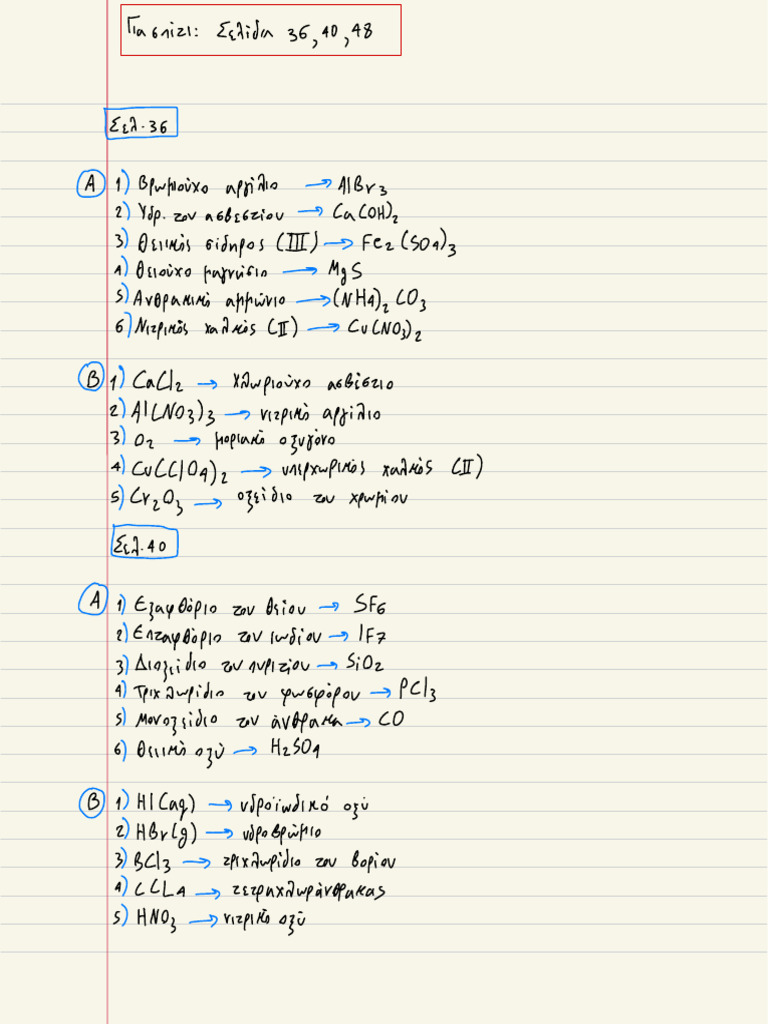 Για σπίτι: Σελίδα 36, 40, 48
Σελ. 36
A 1) Βρωμιούχο αργίλιο → AlBr3
2) Υδρ. του ασβεστίου → Ca(OH)2
3) Θειικός σίδηρος (III) → Fe2(SO4)3
4) Θειούχο μαγνήσιο → MgS
5) Ανθρακικό αμμώνιο → (NH4)2CO3
6) Νιτρικός χαλκός (II) → Cu(NO3)2
B 1) CaCl2 → χλωριούχο ασβέστιο
2) Al(NO3)3 → νιτρικό αργίλιο
3) O2 → μοριακό οξυγόνο
4) Cu(ClO4)2 → υπερχωρικός χαλκός (II)
5) Cr2O3 → οξείδιο του χρωμίου
Σελ. 40
A 1) Εξαφθόριο του θείου → SF6
2) Επταφθόριο του ιωδίου → IF7
3) Διοξείδιο του πυριτίου → SiO2
4) Τριχλωρίδιο του φωσφόρου → PCl3
5) Μονοξείδιο του άνθρακα → CO
6) Θειικό οξύ → H2SO4
B 1) HI(aq) → υδροϊωδικό οξύ
2) HBr(g) → υδροβρώμιο
3) BCl3 → τριχλωρίδιο του βορίου
4) CCL4 → τετραχλωράνθρακας
5) HNO3 → νιτρικό οξύ